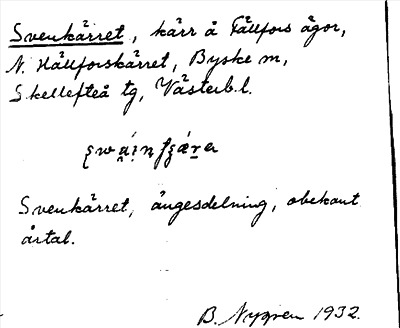 Svenkärret, kärr å Fällfors ägor,
N. Hällforskärret, Byske sn,
Skellefteå tg, Västerb. l.
Svenkärret, ängesdelning, obekant
årtal.
B. Nygren 1932.